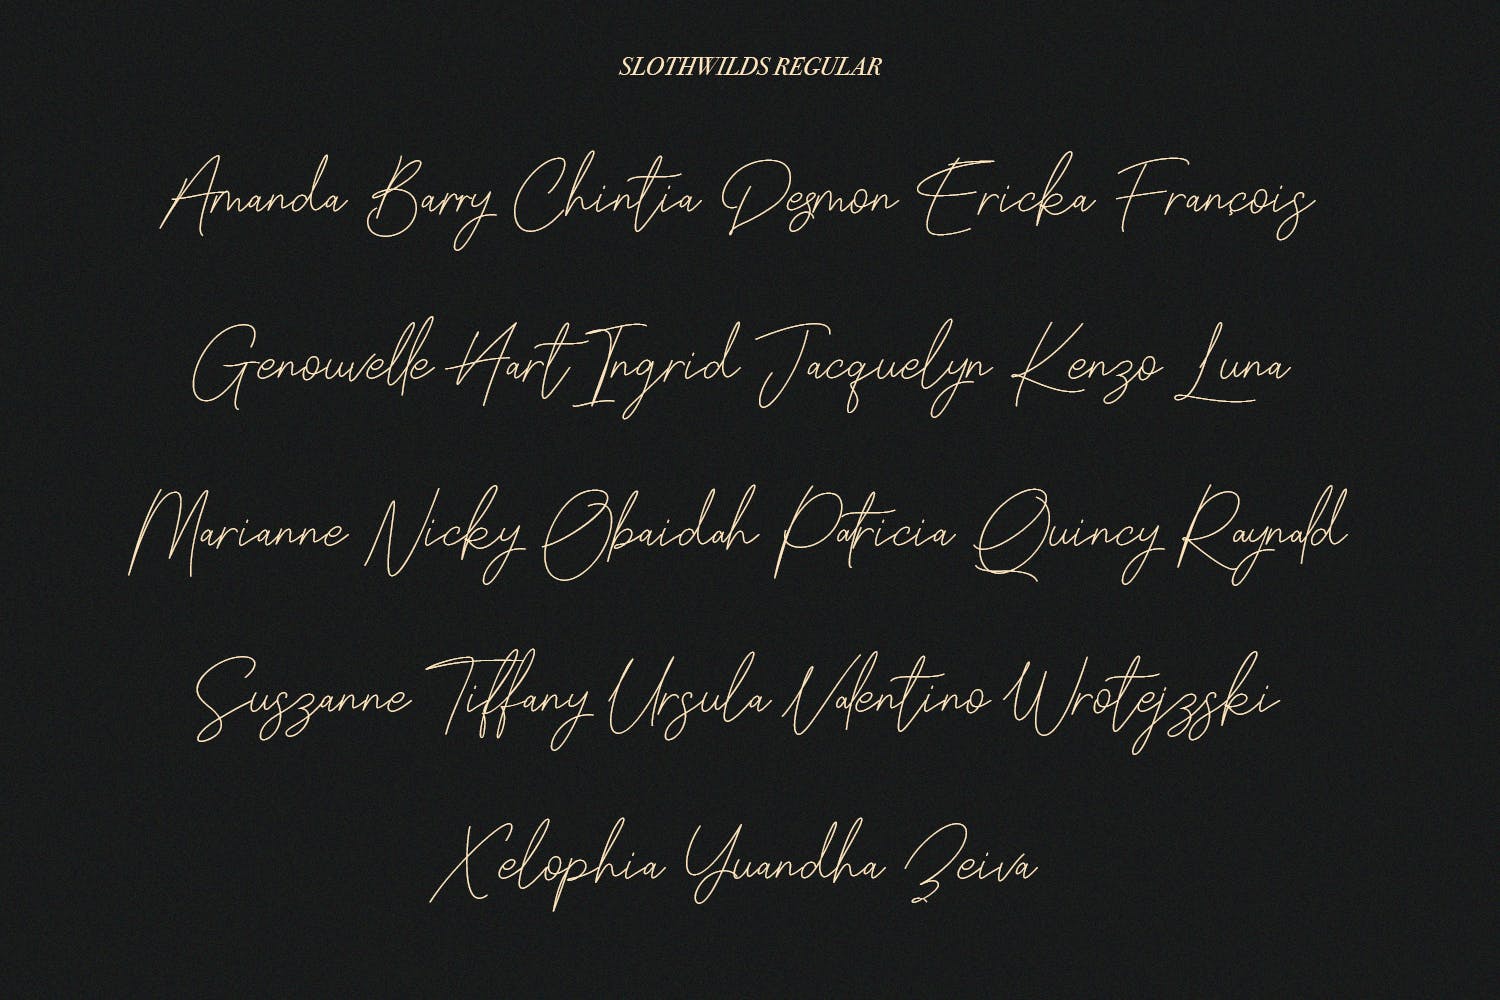 SLOTHWILDS REGULAR
Amanda Barry Chintia Desmon Ericka François
Genouvelle Hart Ingrid Jacquelyn Kenzo Luna
Marianne Nicky Obaidah Patricia Quincy Raynald
Suszanne Tiffany Ursula Valentino Wrotejzski
Xelophia Yuandha Zeiva